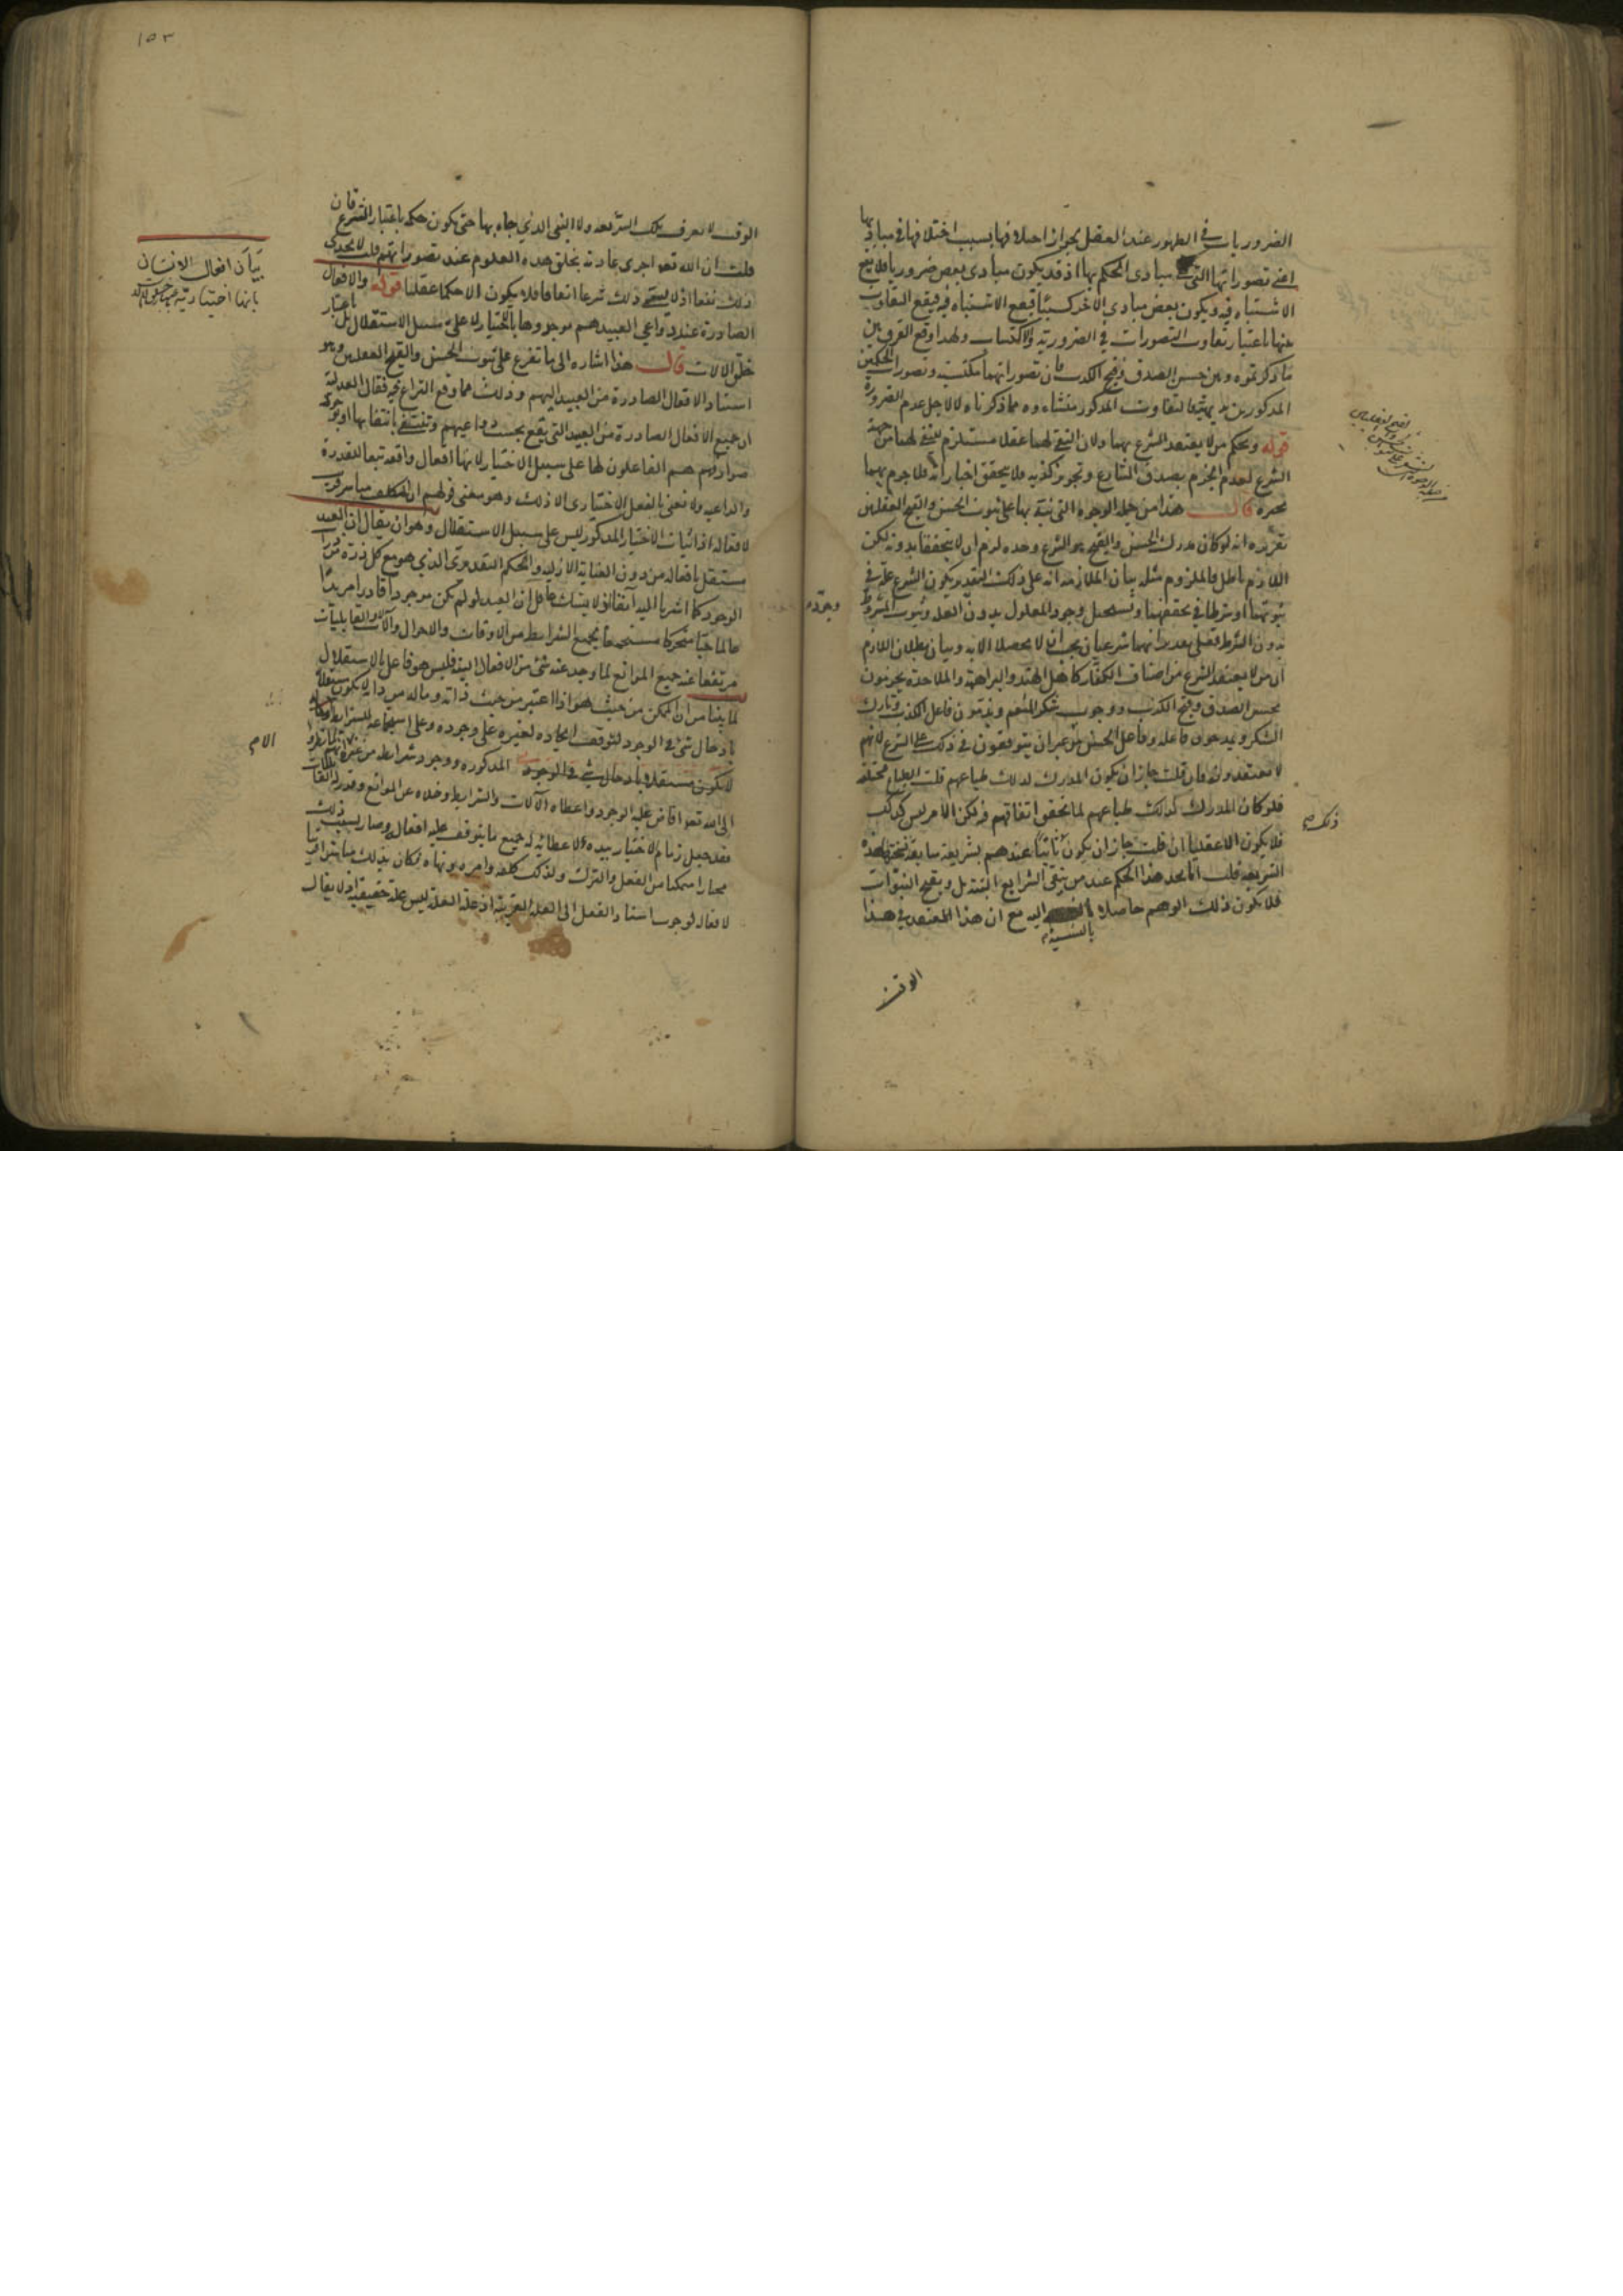 الضروريات في الظهور عند العقل بجواز اختلافها بسبب اختلافها في مباديها
اعني تصوراتها التي مبادى الحكم بها اذ قد يكون مبادى بعض ضروريا فلا يقع
الاشتباه فيه ويكون بعض مبادى الاخر كسبيا فيقع الاشتباه فيه فيقع التفاوت
عنها باعتبار تفاوت التصورات في الضرورية والاكتساب ولهذا وقع الفرق بين
ما ذكرتموه وبين حسن الصدق وقبح الكذب فان تصوراتهما مكتسبة وتصورات الحكمين
المذكورين بديهية فالتفاوت المذكور منشاءه مما ذكرناه لا لاجل عدم الضرورة
قوله وبحكم من لا يعتقد الشرع بهما ولان النفي لهما عقلا مستلزم لنفي لهما من جهة
الشرع لعدم الجزم بصدق الشارع وتجويز كذبه فلا يتحقق اخباراته فلا جزم بهما
بخبره قال هذا من جملة الوجوه التي نبّه بها على ثبوت الحسن والقبح العقليين
تقريره انه لو كان مدرك الحسن والقبح هو الشرع وحده لزم ان لا يتحققا بدونه لكن
اللازم باطل فالملزوم مثله بيان الملازمة انه على ذلك التقدير يكون الشرع علة في
ثبوتهما او شرطا في تحققهما ويستحيل وجود المعلول بدون العلة وثبوت المشروط
بدون الشرط فعلى تقدير انهما شرعيان يجب ان لا يحصلا الا به وبيان بطلان اللازم
ان من لا يعتقد الشرع من اصناف الكفار كاهل الهند والبراهمة والملاحدة يجزمون
بحسن الصدق وقبح الكذب ووجوب شكر المنعم ويذمون فاعل الكذب وتارك
الشكر ويمدحون فاعله وفاعل الحسن من غير ان يتوقفون في ذلك على الشرع لانهم
لا يعتقدونه فان قلت جاز ان يكون المدرك لذلك طباعهم قلت الطباع مختلفة
فلو كان المدرك كذلك طباعهم لما تحقق اتفاقهم فيه لكن الامر ليس كذلك
فلا يكون الا عقليا ان قلت جاز ان يكون ثابتا عندهم بشريعة سابقة نسختها هذه
الشريعة قلت انا نجد هذا الحكم عند من ينفي الشرايع ويقبح النبوات
فلا يكون ذلك الوهم حاصلا بالنسبة اليه مع ان هذا المعتقد في هذا
الوقت
وجوده
ذلك صح
١٥٣
الوقت لا يعرف تلك الشريعة ولا النبي الذي جاء بها حتى يكون حكمه باعتبار الشرع فان
قلت ان الله تعالى اجرى عادته بخلق هذه العلوم عند تصوراتهم قلت لا يجدى
ذلك نفعا اذ لا يسمى ذلك شرعا اتفاقا فلا يكون الا حكما عقليا قوله والافعال
الصادرة عند دواعي العبيد هم موجدوها بالاختيار لا على سبيل الاستقلال بل باعتبار
خلق الالات قال هذا اشارة الى ما تفرع على ثبوت الحسن والقبح العقليين وهو
اسناد الافعال الصادرة من العبيد اليهم وذلك مما وقع النزاع فيه فقال العدلية
ان جميع الافعال الصادرة من العبيد التي يقع بحسب دواعيهم وتنتفي بانتفائها او بوجود
صوارفهم هم الفاعلون لها على سبيل الاختيار لانها افعال واقعة تبعا للقدرة
والداعية ولا نعني بالفعل الاختيارى الا ذلك وهو معنى قولهم ان المكلف مباشر قريب
لافعاله اذ اثبات الاختيار المذكور ليس على سبيل الاستقلال وهو ان يقال ان العبد
مستقل بافعاله من دون العناية الازلية والحكم التقديرى الذي هو مع كل ذرة من ذرات
الوجود كما اشرنا اليه آنفا لان العبد لو لم يكن موجودا قادرا مريدا
عالما حيا متحركا مستجمعا بجميع الشرايط من الاوقات والاحوال والآلات والقابليات
مرتفعا عنه جميع الموانع لما وجد عنه شئ من الافعال البتة فليس هو فاعل بالاستقلال
لما بينا من ان الممكن من حيث هو اذا اعتبر من حيث ذاته وماله من ذاته لا يكون مستقلا
بادخال شئ في الوجود لتوقف ايجاده لغيره على وجوده وعلى استجماعه للشرايط
لا يكون مستقلا بادخال شئ في الوجود المذكورة ووجود شرايطه من غيره
الى الله تعالى افاض عليه الوجود واعطاه الآلات والشرايط وخلاه عن الموانع وقدر له
فقد جعل زمام الاختيار بيده لاعطائه له جميع ما يتوقف عليه افعاله وصار بسبب ذلك
مختارا متمكنا من الفعل والترك ولذلك كلفه وامره ونهاه فكان بذلك مباشرا قريبا
لافعاله لوجوب اسناد الفعل الى العلة القريبة اذ علة العلة ليس علة حقيقية اذ لا يقال
بيان افعال الانسان
بانها اختيارية